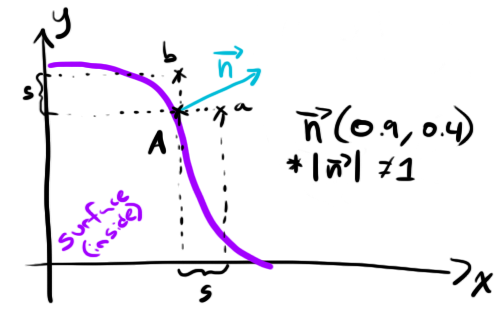 y
b
n
s
a
A
n(0.9, 0.4)
*|n| ≠ 1
surface
(inside)
s
x